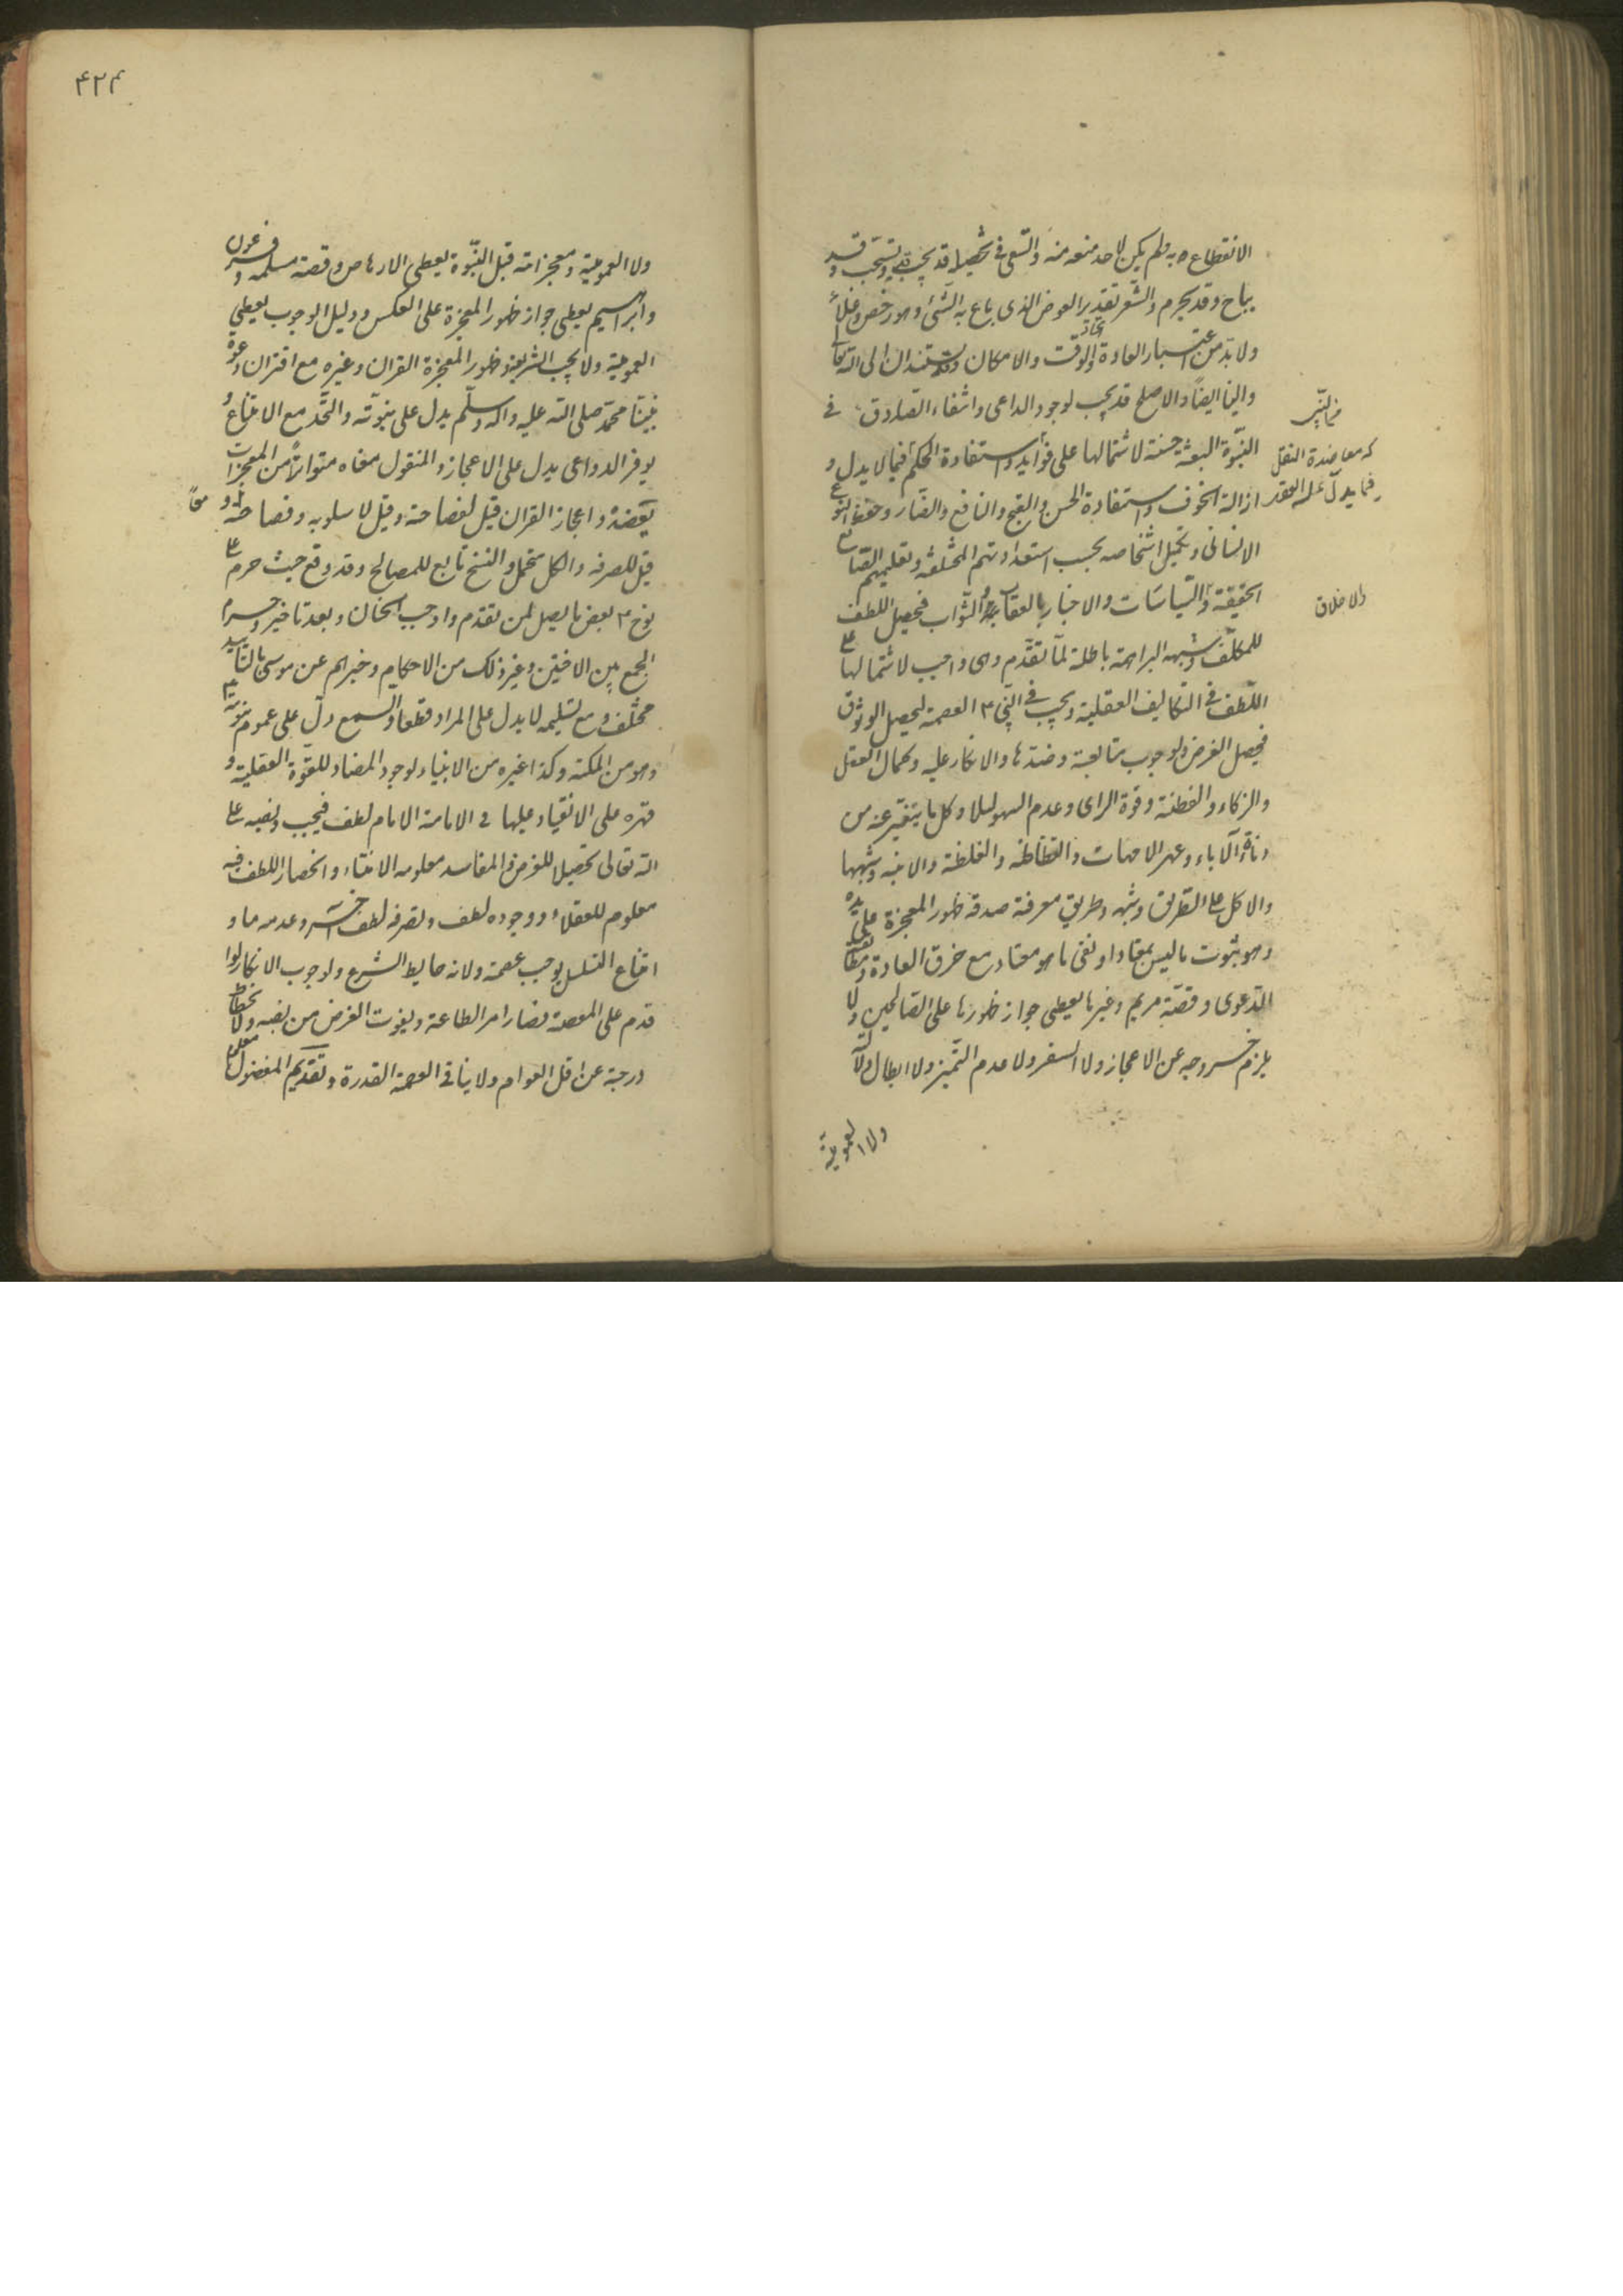 الانتفاع به ولم يكن لاحد منعه منه والسعى فى تحصيله قد يجب ويستحب وقد
يباح وقد يحرم والسعر تقدير العوض الذى يباع به الشئ وهو رخص وغلاء
ولا بد من اعتبار العادة واتحاد الوقت والامكان ويستندان الى الله تعالى
والينا ايضاً والاصلح قد يجب لوجود الداعى وانتفاء الصارف فى
النبوة البعثة حسنة لاشتمالها على فوائد واستفادة الحكم فيما لا يدل و
كمعاضدة العقل
فيما يدل عليه العقل
ازالة الخوف واستفادة الحسن والقبح والنافع والضار وحفظ النوع
الانسانى وتكميل اشخاصه بحسب استعداداتهم المختلفة وتعليمهم الصنائع
الخفيفة والسياسات والاخبار بالعقاب والثواب فيحصل اللطف
والاخلاق
للمكلف وشبهه البراهمة باطلة لما تقدم وهى واجب لاشتمالها على
اللطف فى التكاليف العقلية ويجب فى النبى العصمة ليحصل الوثوق
فيحصل الغرض ولوجوب متابعته وضدها والانكار عليه وكمال العقل
والزكاء والفطنة وقوة الراى وعدم السهو لئلا وكل ما يتنفر عنه من
دناءة الآباء وعهر الامهات والفظاظة والغلظة والابنة وشبهها
والاكل على الطريق وشبهه وطريق معرفة صدقه ظهور المعجزة على يده
وهو ثبوت ما ليس بمعتاد او نفى ما هو معتاد مع خرق العادة ومطابقة
الدعوى وقصة مريم وغيرها يعطى جواز ظهورها على الصالحين ولا
يلزم خروجه عن الاعجاز ولا السفر ولا عدم التميز ولا ابطال دلالته
ولا العمومية
۴۲۴
ولا العمومية ومعجزاته قبل النبوة يعطى الارهاص وقصة مسلمة وفرعون
وابراهيم يعطى جواز ظهور المعجزة على العكس ودليل الوجوب يعطى
العمومية ولا يجب الشريعة وظهور المعجزة القران وغيره مع اقتران دعوة
نبينا محمد صلى الله عليه واله وسلم يدل على نبوته والتحد مع الامتناع و
توفر الدواعى يدل على الاعجاز والمنقول معناه متواتراً من المعجزات
يعضده واعجاز القران قيل لفصاحته وقيل لاسلوبه وفصاحته معاً و
قيل للصرفه والكل محتمل والنسخ تابع للمصالح وقد وقع حيث حرم على
نوح بعض ما يحل لمن تقدم واوجب الختان وبعد تاخيره وحرم
الجمع بين الاختين وغير ذلك من الاحكام وخبرهم عن موسى بالتابيد
مختلف ومع تسليمه لا يدل على المراد قطعا والسمع دل على عموم نبوته
وهو من الملكة وكذا غيره من الانبياء لوجود المضاد للقوة العقلية و
قهره على الانقياد عليها فى الامامة الامام لطف فيجب نصبه على
الله تعالى تحصيلا للغرض والمفاسد معلومه الانتفاء وانحصار اللطف فيه
معلوم للعقلاء ووجوده لطف وتصرفه لطف آخر وعدمه منا و
امتناع التسلسل يوجب عصمة ولانه حافظ الشرع ولوجوب الانكار لو
قدم على المعصية فضاد امر الطاعة ويفوت الغرض من نصبه ولانحطاط
درجته عن اقل العوام ولا ينافى العصمة القدرة وتقديم المفضول معلوم